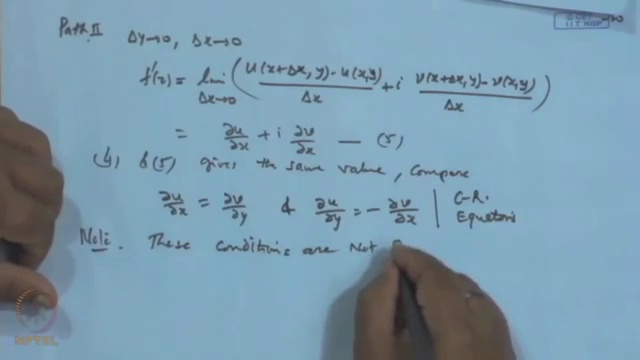 Path II Δy→0, Δx→0
f'(z) = lim Δx→0 ( (u(x+Δx, y) - u(x,y))/Δx + i (v(x+Δx, y) - v(x,y))/Δx )
= ∂u/∂x + i ∂v/∂x — (5)
(4) & (5) gives the same value, Compare
∂u/∂x = ∂v/∂y & ∂u/∂y = - ∂v/∂x | C-R. Equations
Note: These conditions are Not
NPTEL